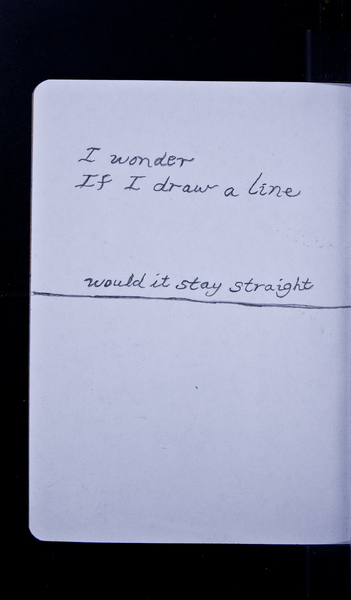 I wonder
If I draw a line
would it stay straight